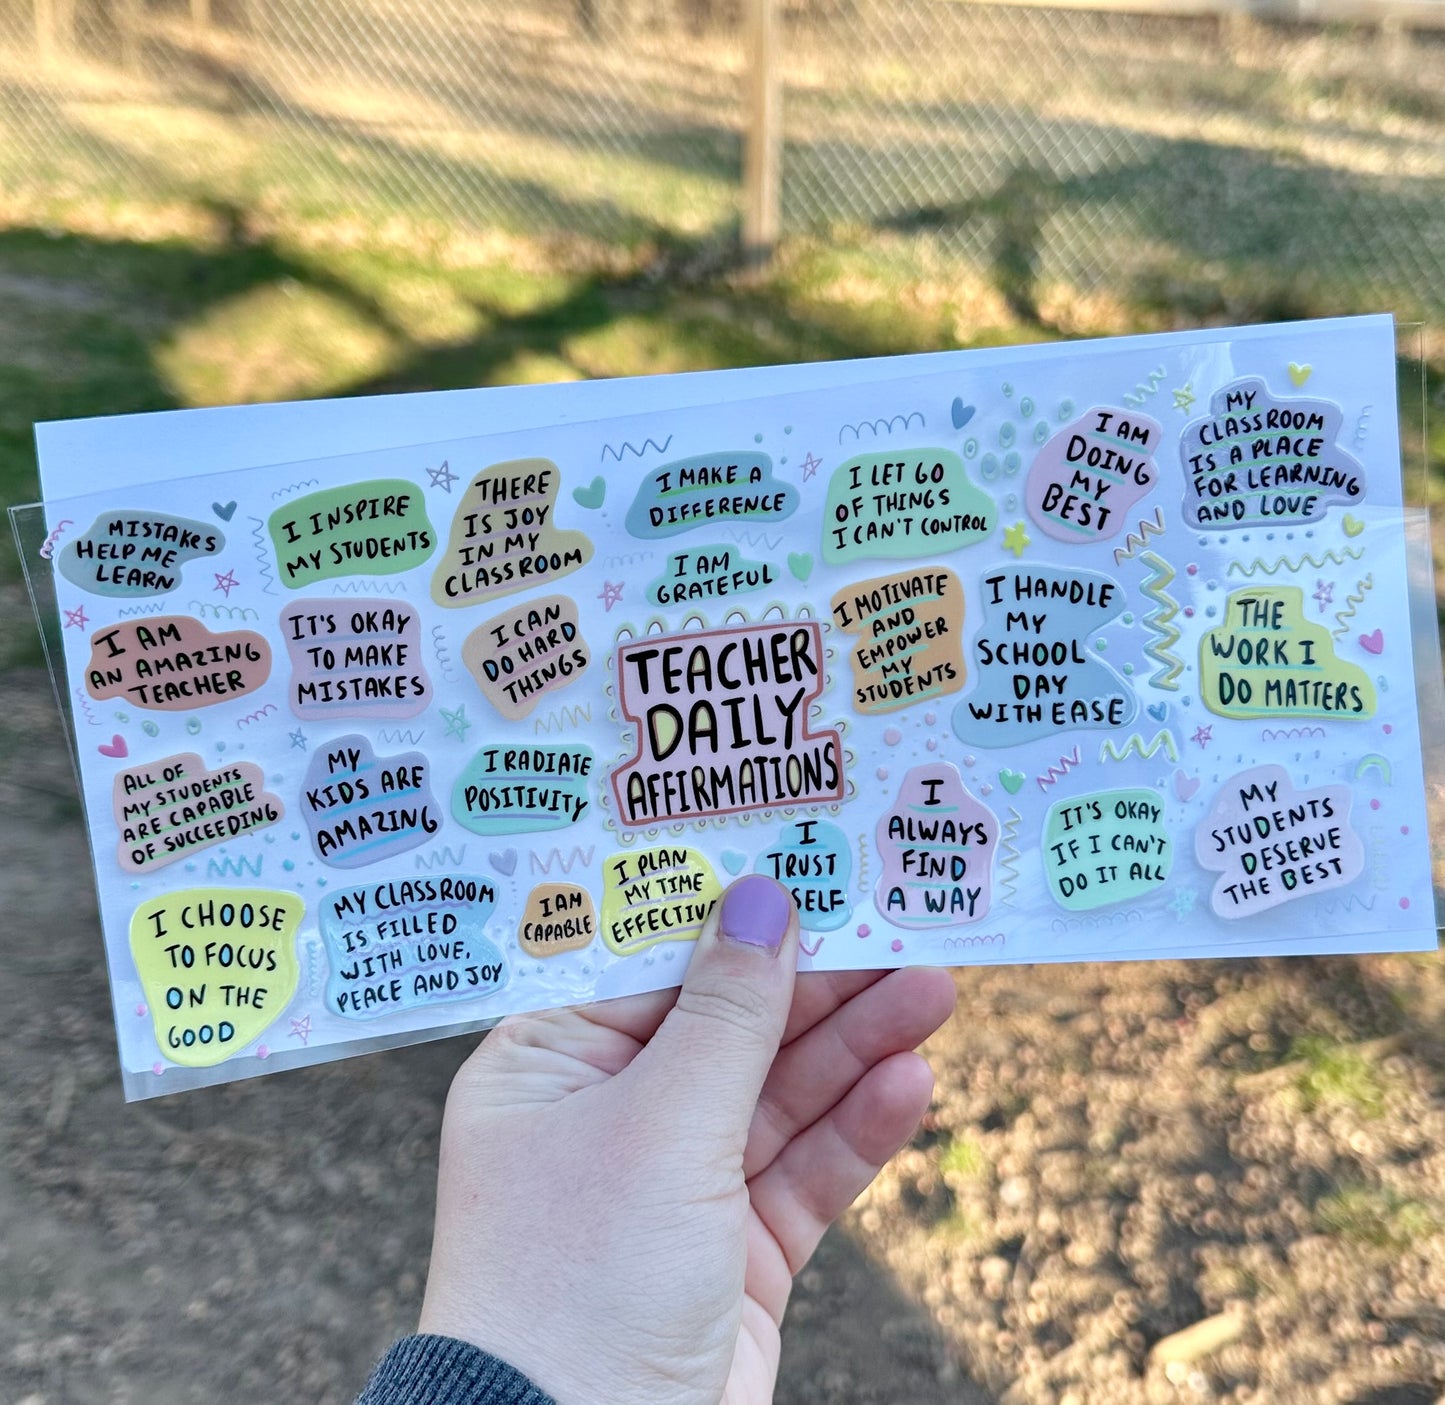 MISTAKES
HELP ME
LEARN
I INSPIRE
MY STUDENTS
THERE
IS JOY
IN MY
CLASSROOM
I MAKE A
DIFFERENCE
I LET GO
OF THINGS
I CAN'T CONTROL
I AM
DOING
MY
BEST
MY
CLASSROOM
IS A PLACE
FOR LEARNING
AND LOVE
I AM
AN AMAZING
TEACHER
IT'S OKAY
TO MAKE
MISTAKES
I CAN
DO HARD
THINGS
I AM
GRATEFUL
TEACHER
DAILY
AFFIRMATIONS
I MOTIVATE
AND
EMPOWER
MY
STUDENTS
I HANDLE
MY
SCHOOL
DAY
WITH EASE
THE
WORK I
DO MATTERS
ALL OF
MY STUDENTS
ARE CAPABLE
OF SUCCEEDING
MY
KIDS ARE
AMAZING
I RADIATE
POSITIVITY
I CHOOSE
TO FOCUS
ON THE
GOOD
MY CLASSROOM
IS FILLED
WITH LOVE,
PEACE AND JOY
I AM
CAPABLE
I PLAN
MY TIME
EFFECTIV
I
TRUST
SELF
I
ALWAYS
FIND
A WAY
IT'S OKAY
IF I CAN'T
DO IT ALL
MY
STUDENTS
DESERVE
THE BEST